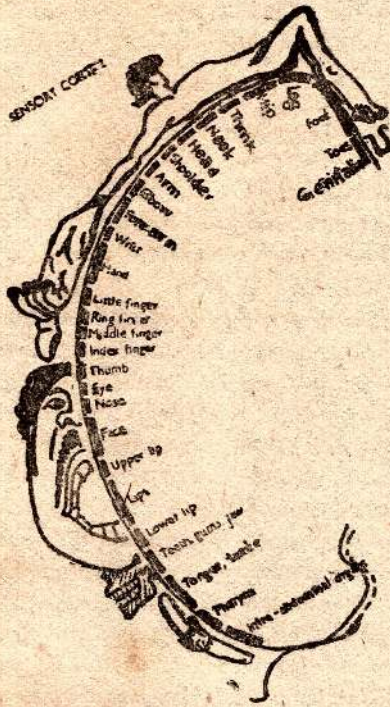 SENSORY CORTEX
Genitals
Toes
Foot
Leg
Hip
Trunk
Neck
Head
Shoulder
Arm
Elbow
Forearm
Wrist
Hand
Little finger
Ring finger
Middle finger
Index finger
Thumb
Eye
Nose
Face
Upper lip
Lips
Lower lip
Teeth gums jaw
Tongue
Pharynx
Intra-abdominal